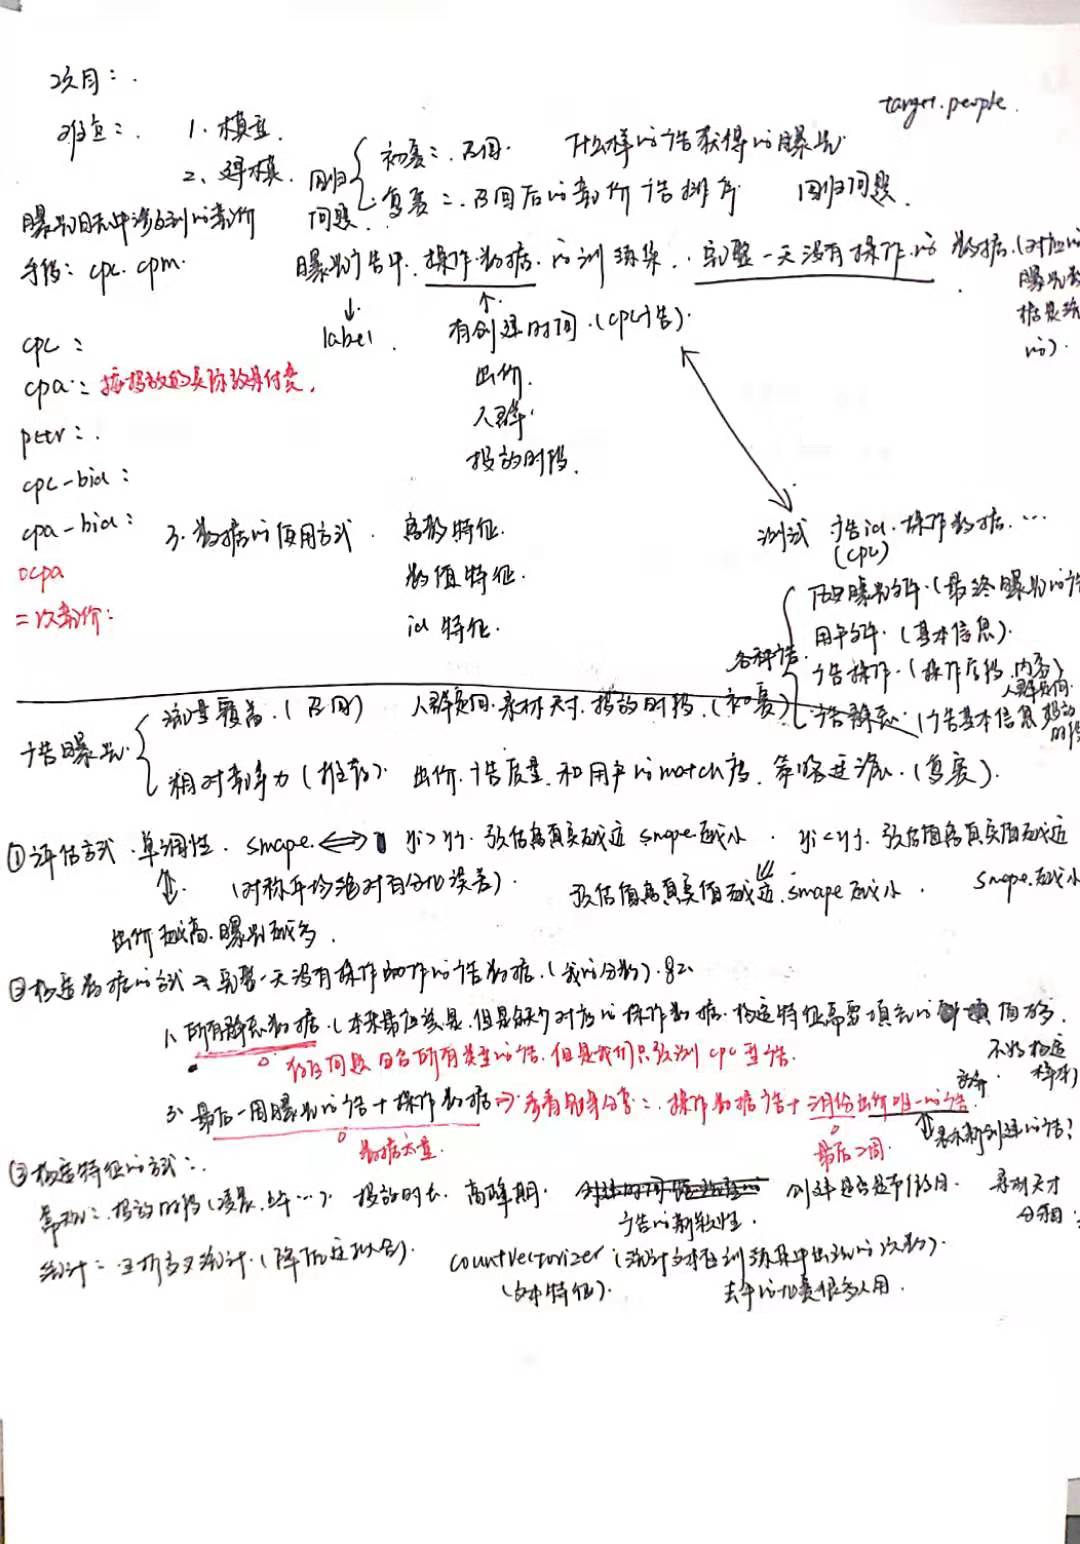 target.people.
难点：. 1. 模型.
2、建模.
回归问题. 初赛：召回. 什么样的广告获得的曝光.
复赛：召回后的竞价广告排序 回归问题.
曝光日志中涉及到的竞价
手段：cpc. cpm.
曝光广告中. 操作数据. 的训练集. 完整一天没有操作的数据.(对应的曝光数据是
label. 有创建时间.(cpc广告).
出价.
人群.
投放时段.
cpc：
cpa：按投放的实际效果付费.
pctr：.
cpc-bid：
cpa-bid：
ocpa
二次竞价：
3. 数据的使用方式. 离散特征.
数值特征.
id 特征.
测试 广告id. 操作数据. …
(cpc)
历史曝光文件.(最终曝光的广
用户文件.(基本信息).
各种广告. 广告操作.(操作 内容)
广告静态.(广告基本信息 投放时段
广告曝光. 流量覆盖.(召回) 人群定向. 素材尺寸. 投放时段.(初赛)
相对竞争力(推荐). 出价. 广告质量. 和用户的match度. 策略过滤.(复赛).
①评估方式. 单调性. smape. ⟺ yi>yj. 预估离真实越近 smape越小. yi<yj. 预估值离真实值越近
(对称平均绝对百分比误差). 预估值离真实值越近. smape越小. smape.越小
出价越高. 曝光越多.
②构造数据的方式 完整一天没有操作动作的广告数据.(我的分数). 82.
1. 所有静态数据.(本来最应该是. 但是缺少对应的操作数据. 构造特征需要填充的 值多.
存在问题 回台所有类型的广告. 但是我们只预测 cpc 型广告. 不好构造样本)
3. 最后一周曝光的广告+操作数据 参看 分享：. 操作数据广告+ 月份出价唯一的广告.
数据太重. 最后2周. 表示新创建的广告?
③构造特征的方式：.
常规：. 投放时段(凌晨. 上午…). 投放时长. 高峰期. 创建是否是节假日.
广告的新鲜性.
统计：三阶交叉统计.(降低过拟合). countVectorizer(统计文本在训练集中出现的次数).
(文本特征). 去年的比赛很多人用.